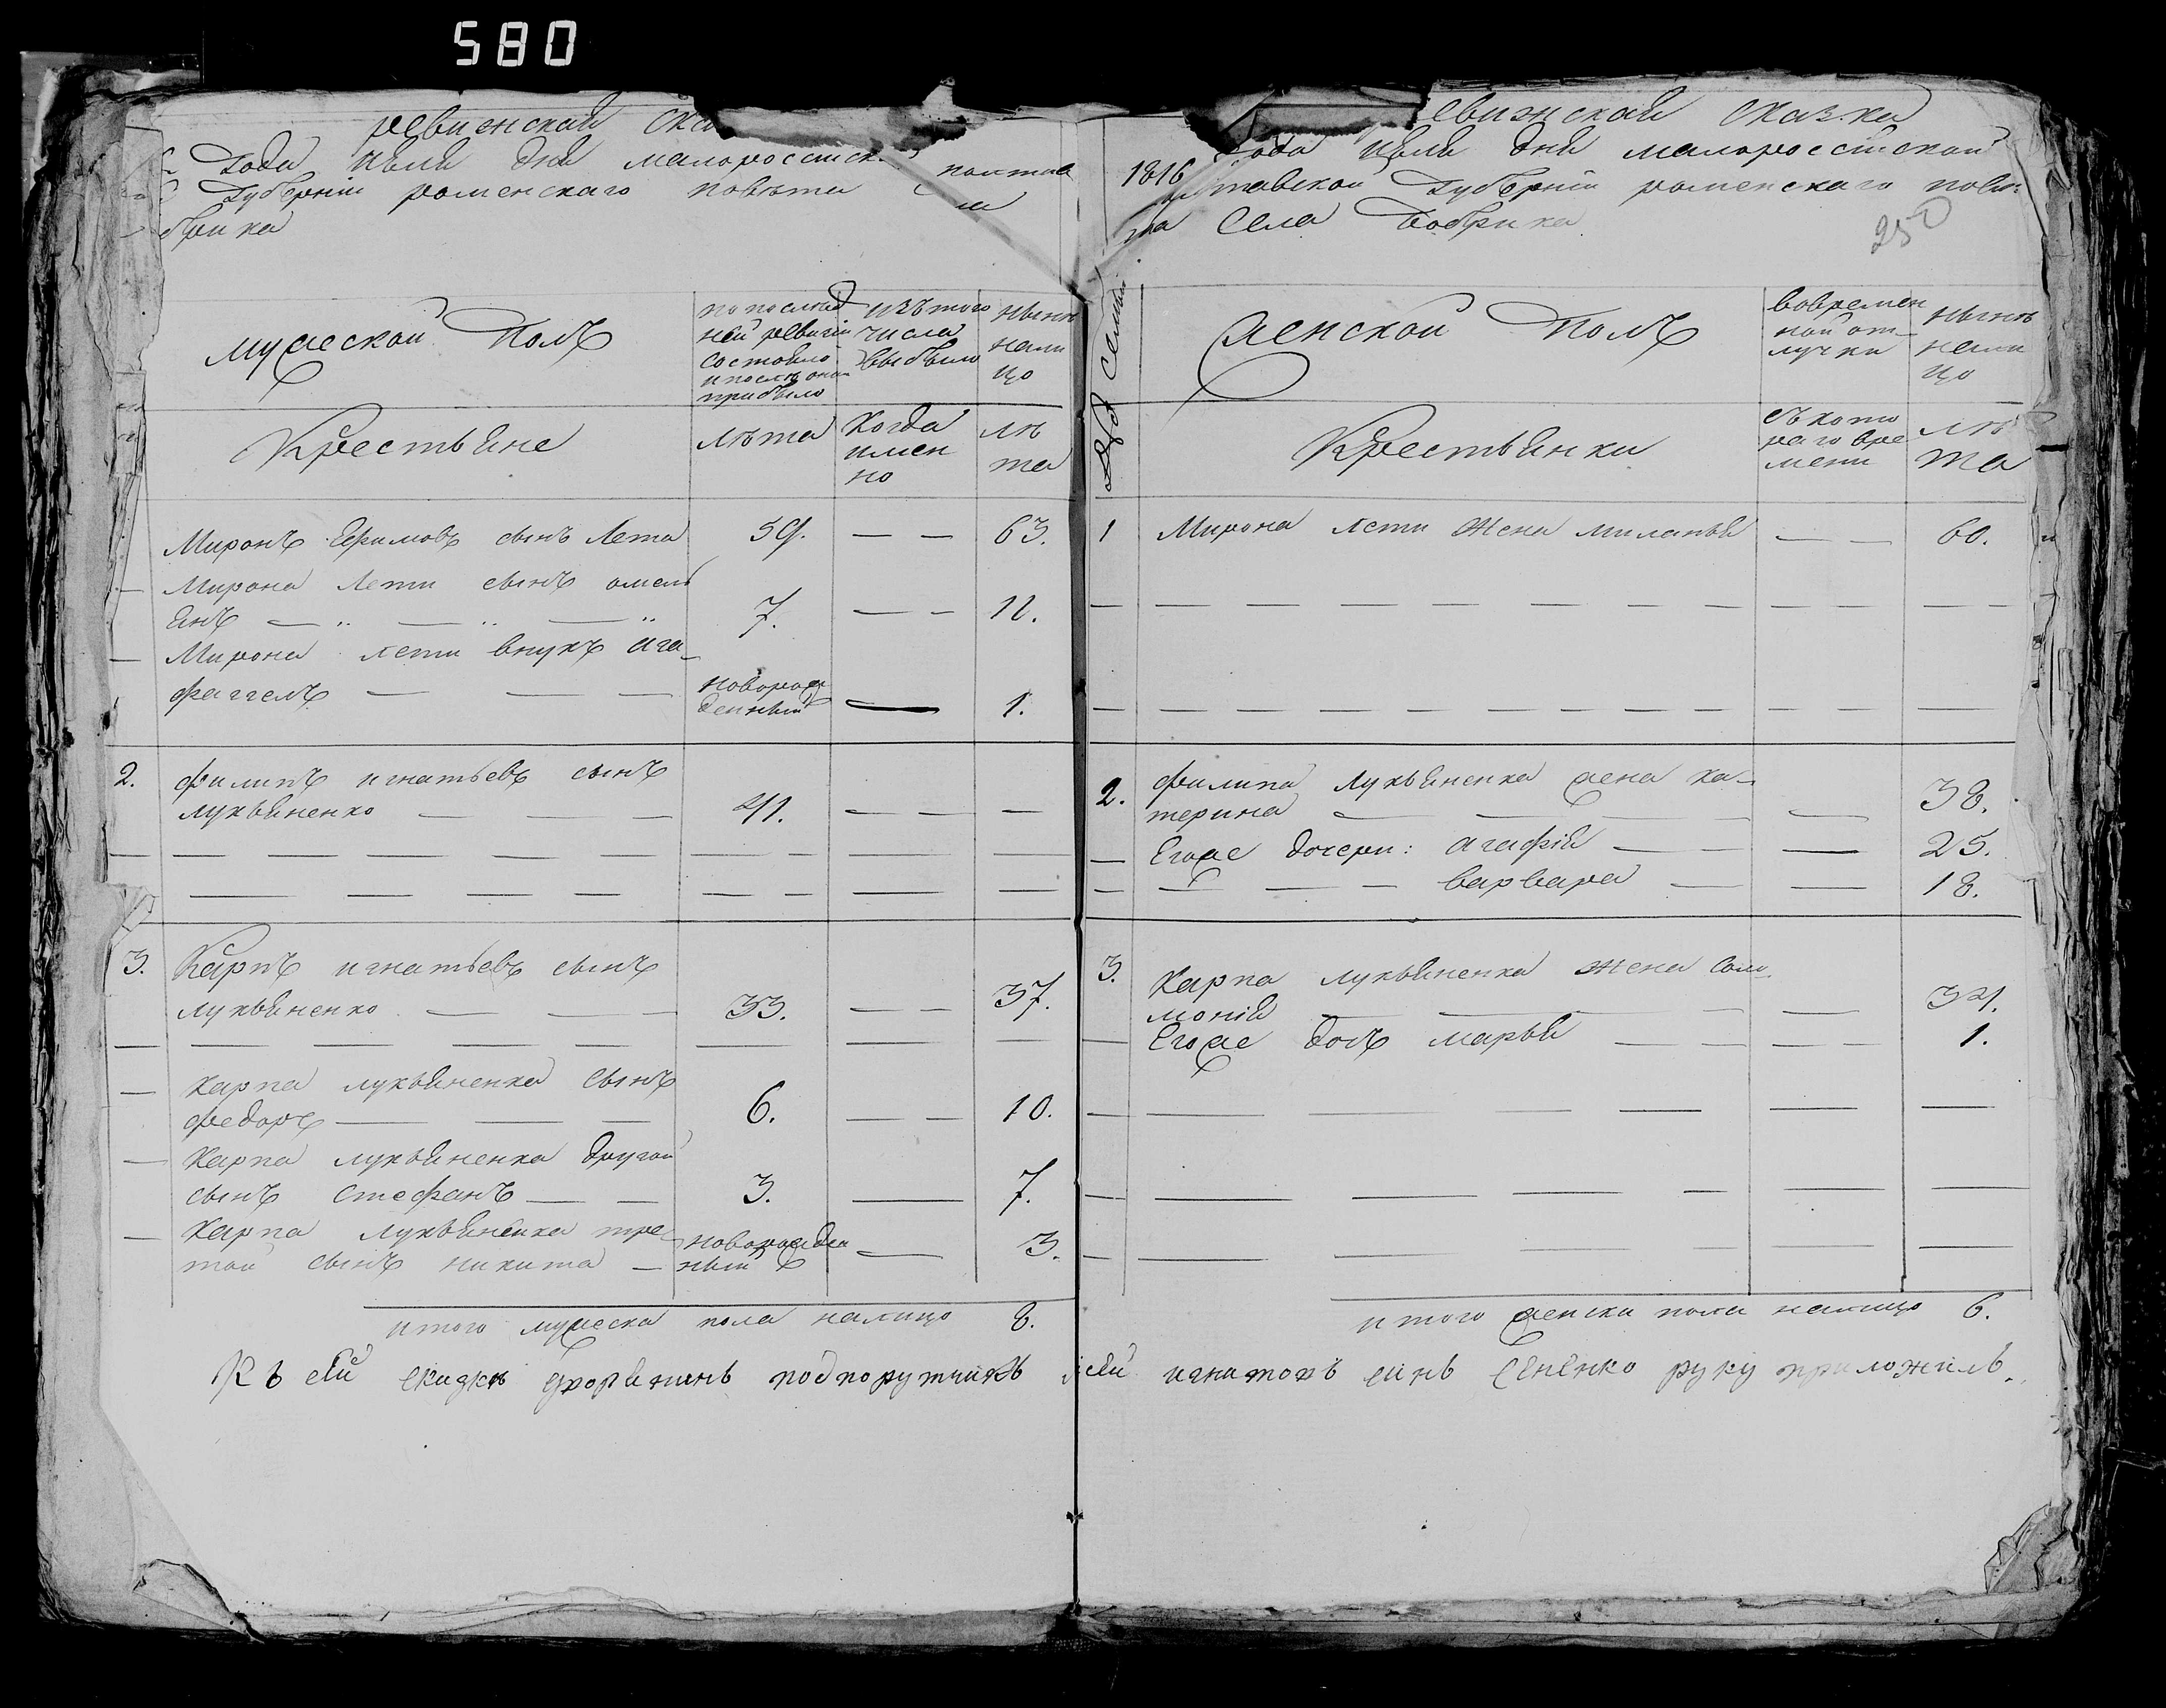 580
ревизской
года июля дня малороссийск полтав
губернии роменскаго повѣта
брика
мужеской полъ
по послед
ней ревизіи
состояло
и послѣ оной
прибыло
изъ того
числа
выбыло
нынѣ
нали
цо
Крестьяне
лѣта
Когда
имен
но
лѣ
та
Миронъ Ефимовъ сынъ Лета 59. — — 63.
— Мирона Лети сынъ омель
янъ — — — 7. — — 11.
— Мирона лети внукъ ага
фаггелъ — — — новорож
денный — 1.
2. филипъ игнатьевъ сынъ
лукьяненко — — — 41. — — —
3. Карпъ игнатьевъ сынъ
лукьяненко — — 33. — — 37.
— Карпа лукьяненка сынъ
федоръ — — — 6. — — 10.
— Карпа лукьяненка другой
сынъ стефанъ — — 3. — 7.
— Карпа лукьяненка тре
той сынъ никита — новорожден
ный — 3.
итого мужеска пола налицо 8.
Къ сей скаскѣ подпорутчикъ
ревизской сказки
1816 года июля дня малороссійской
тавской губерніи роменскаго повѣ
та села бобрика
250
семьи
женской полъ
вовремен
ной от
лучки
нынѣ
нали
цо
Крестьянки
съ кото
раго вре
мени
лѣ
та
1 Мирона лети жена миланья — — 60.
2. филипа лукьяненка жена ка
терина — — — — 38.
— Егоже дочери: агафія — — — 25.
— — — — варвара — — 18.
3. Карпа лукьяненка жена соло
монія — — — — 34.
— Егоже дочъ марья — — — — 1.
итого женска пола налицо 6.
синъ руку приложилъ.